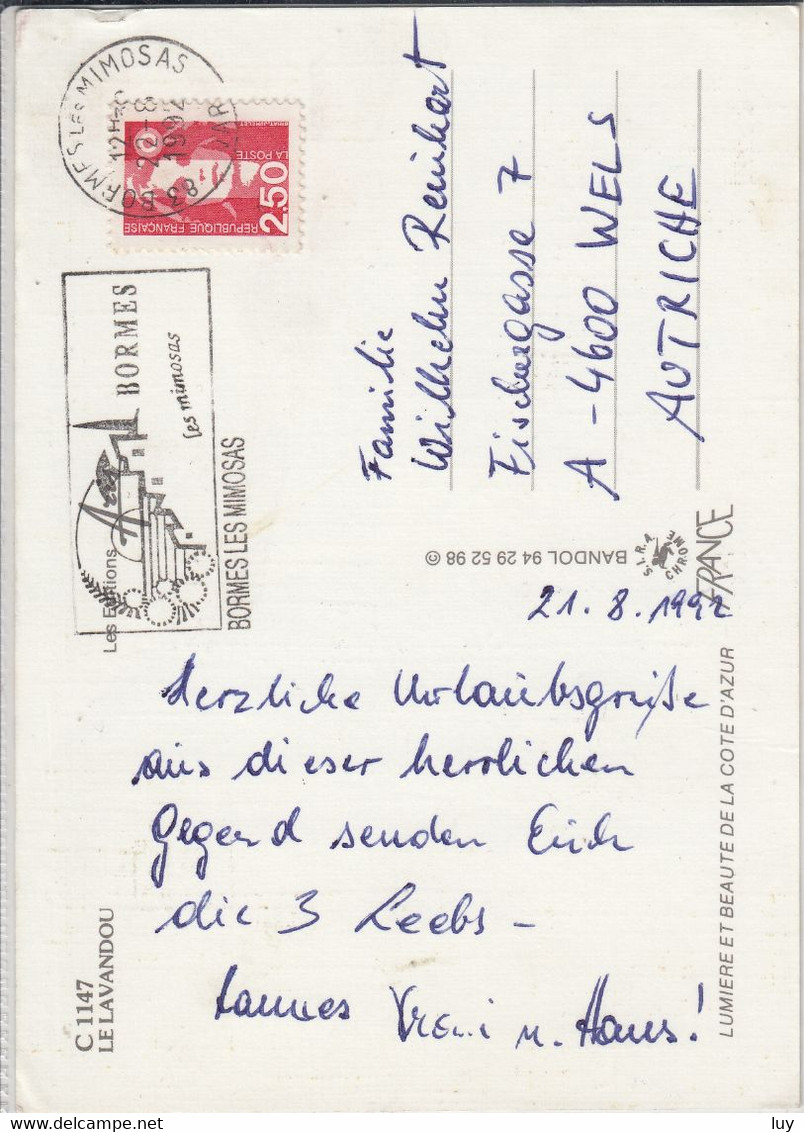 C 1147
LE LAVANDOU
21. 8. 1992
Herzliche Urlaubsgrüße
aus dieser herrlichen
Gegend senden Euch
die 3 Leebs -
Hannes Vreni u. Hans!
LUMIERE ET BEAUTE DE LA COTE D'AZUR
Les Editions
BANDOL 94 29 52 98 ©
S.I.R.A.
CHROME
FRANCE
BORMES
les mimosas
BORMES LES MIMOSAS
BORMES LES MIMOSAS
12H
22-8
1992
83 VAR
2,50
REPUBLIQUE FRANÇAISE
LA POSTE
Familie
Wilhelm Reinhart
Fischergasse 7
A-4600 WELS
AUTRICHE
www.delcampe.net
luy